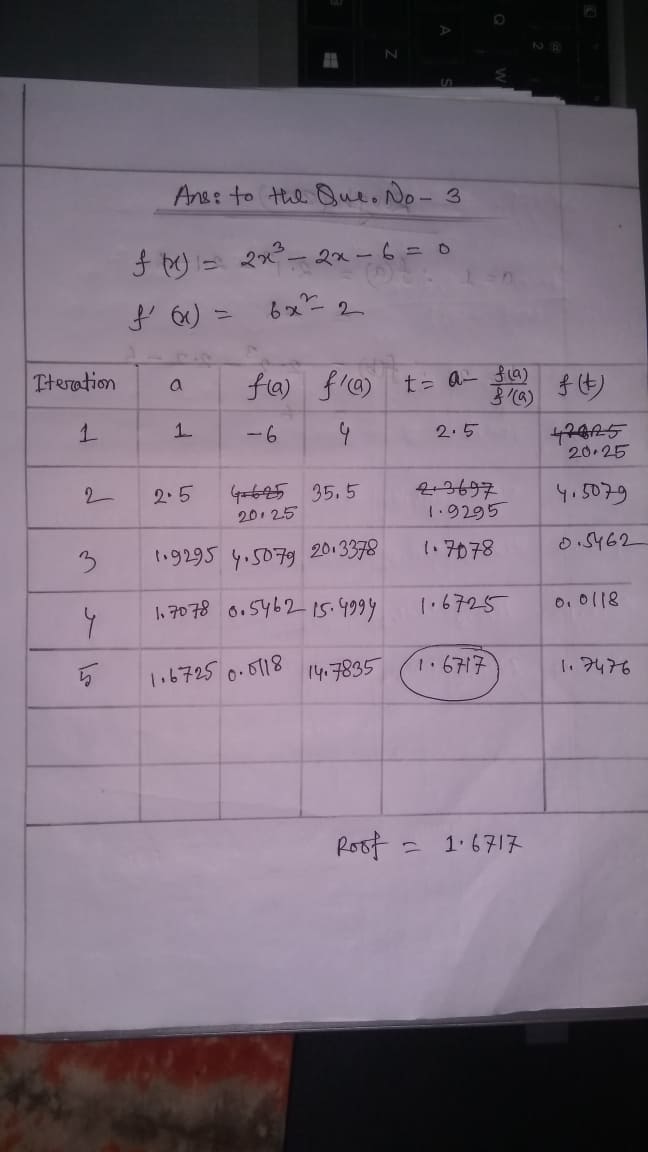 Ans: to the Que. No - 3
f(x) = 2x³ - 2x - 6 = 0
f'(x) = 6x² - 2
Iteration a f(a) f'(a) t = a - f(a)/f'(a) f(t)
1 1 -6 4 2.5 20.25
2 2.5 4.625 35.5 2.3697 4.5079
20.25 1.9295
3 1.9295 4.5079 20.3378 1.7078 0.5462
4 1.7078 0.5462 15.4994 1.6725 0.0118
5 1.6725 0.0118 14.7835 1.6717 1.7476
Root = 1.6717
Q
W
A
S
Z
2